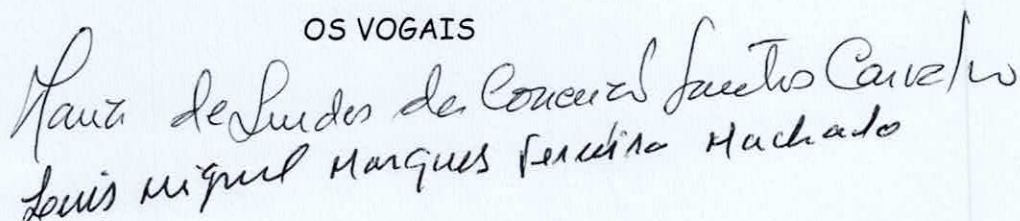 OS VOGAIS
Maria de Lurdes da Conceição Santos Carvalho
Luis Miguel Marques Ferreira Machado